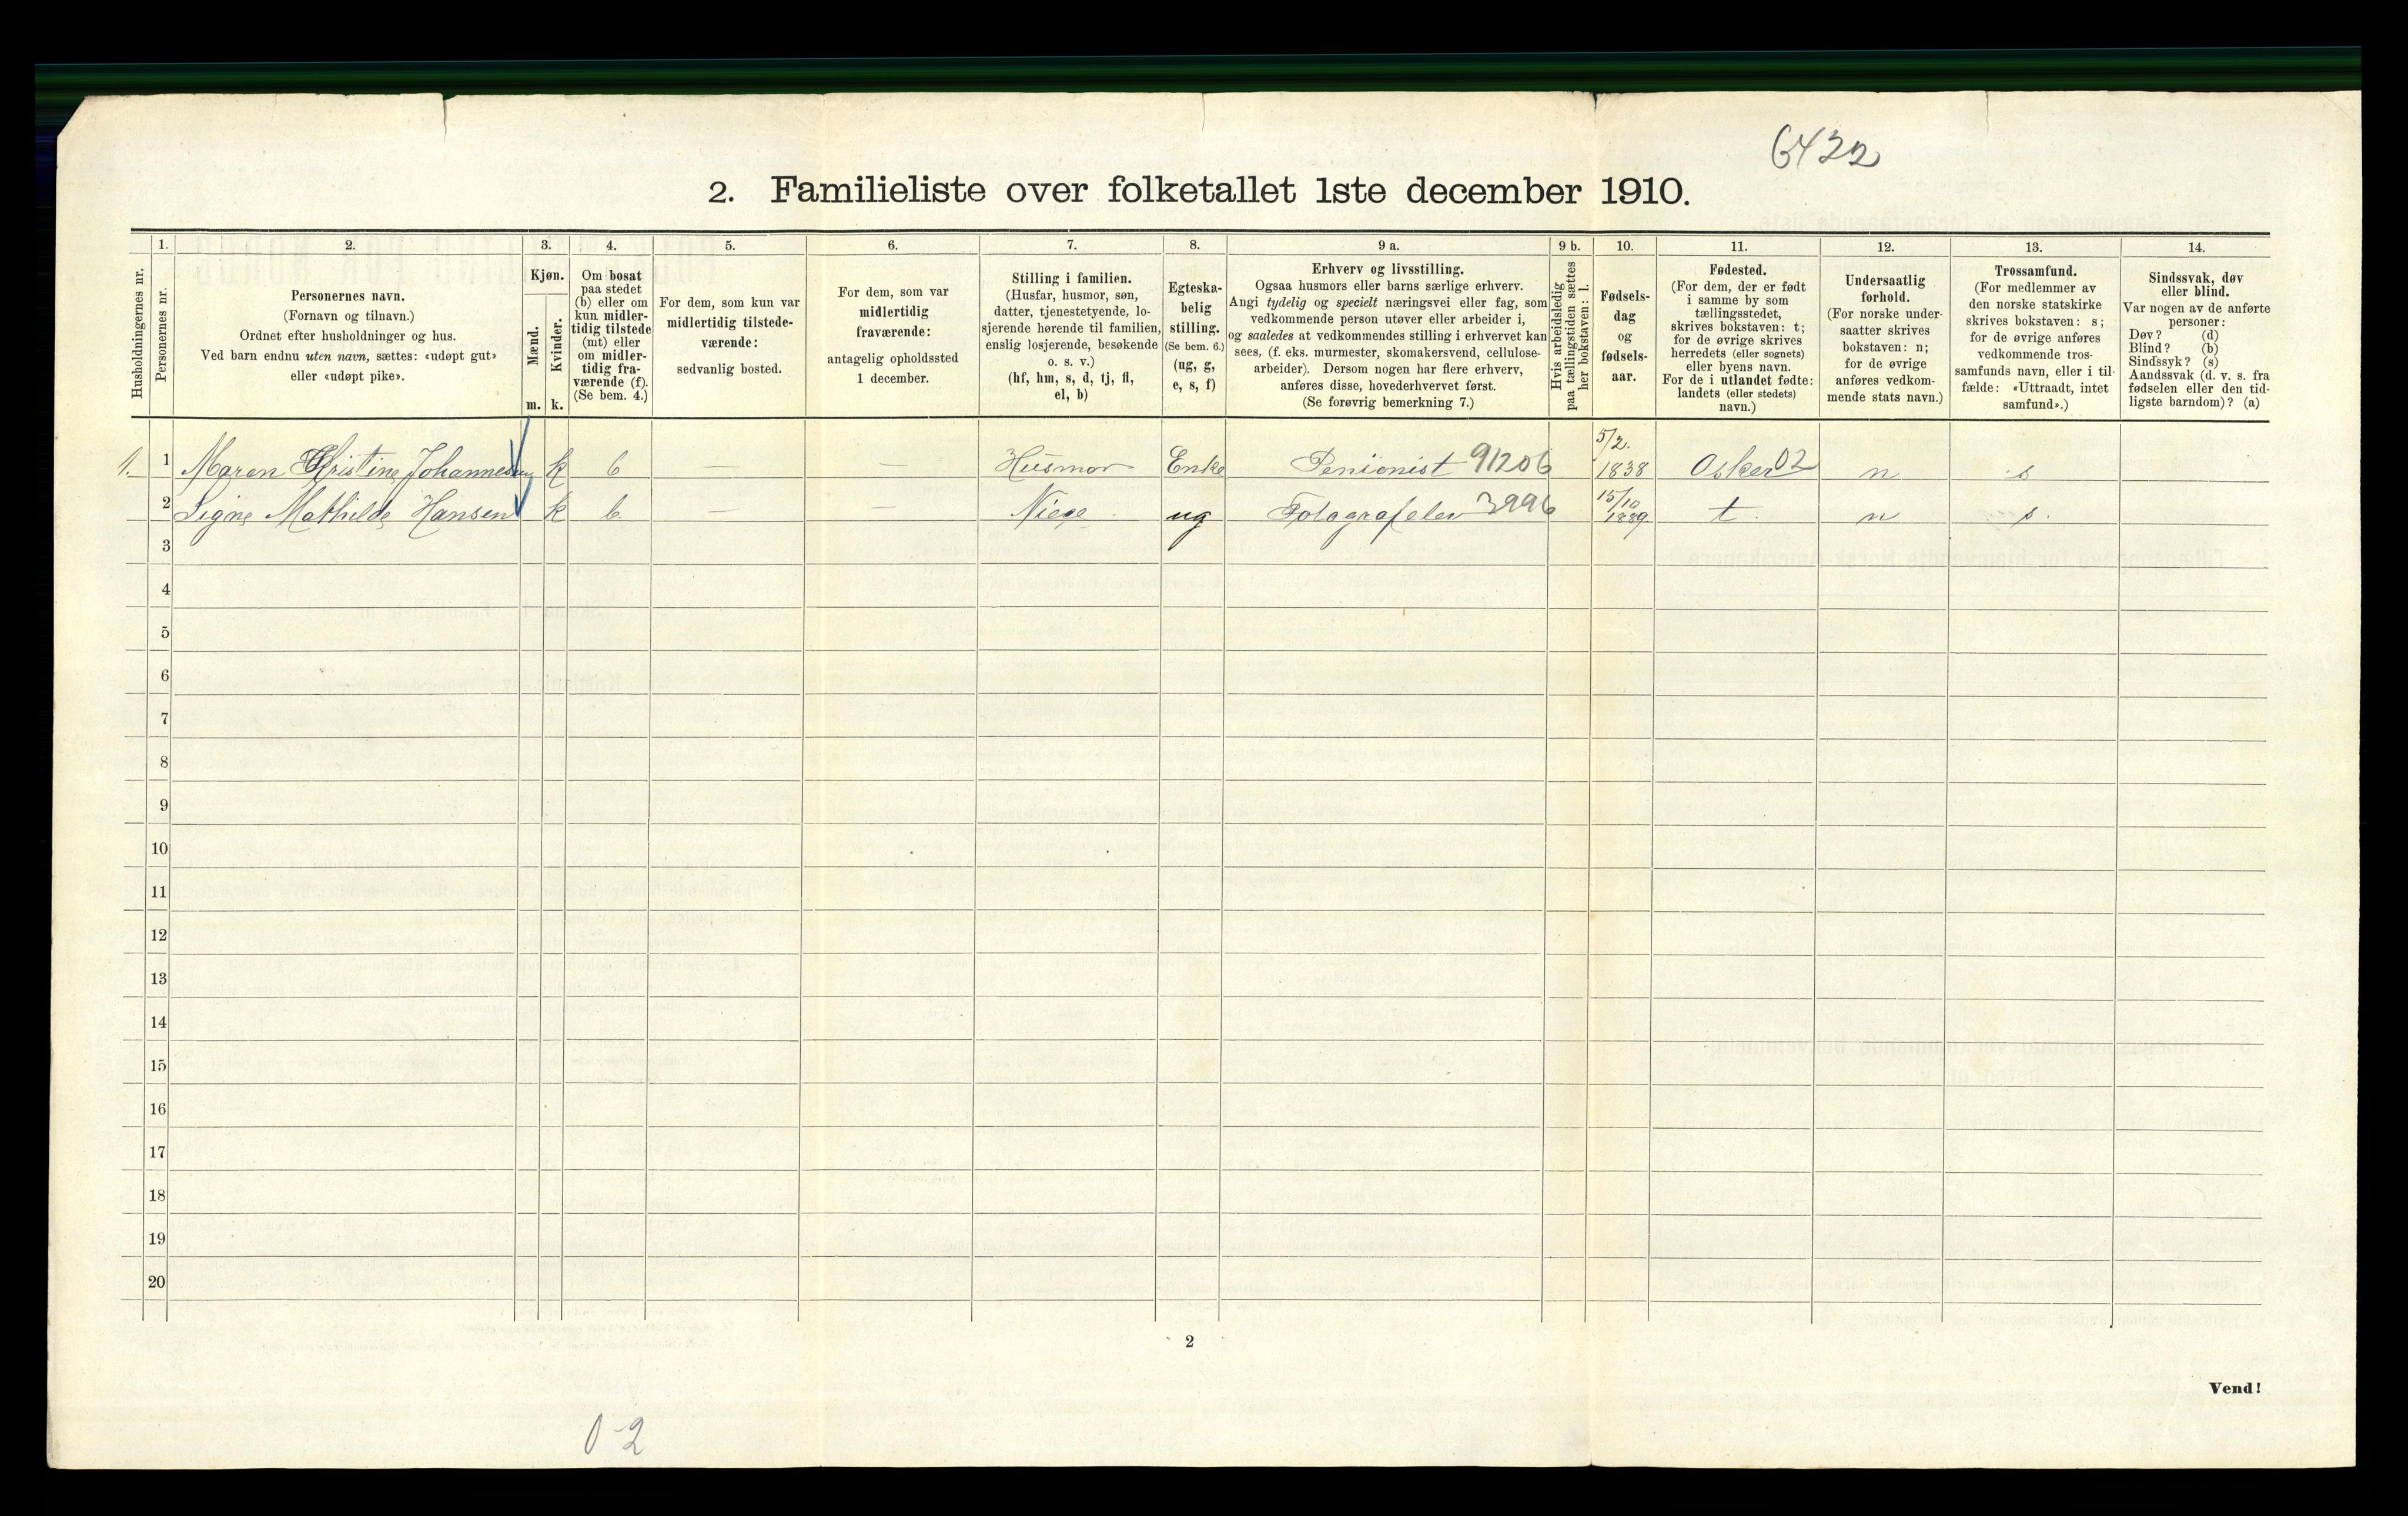 6422
2. Familieliste over folketallet 1ste december 1910.
Husholdningernes nr.
1.
Personernes nr.
2.
Personernes navn.
(Fornavn og tilnavn.)
Ordnet efter husholdninger og hus.
Ved barn endnu uten navn, sættes: «udøpt gut»
eller «udøpt pike».
3.
Kjøn.
Mænd.
m.
Kvinder.
k.
4.
Om bosat
paa stedet
(b) eller om
kun midler-
tidig tilstede
(mt) eller
om midler-
tidig fra-
værende (f).
(Se bem. 4.)
5.
For dem, som kun var
midlertidig tilstede-
værende:
sedvanlig bosted.
6.
For dem, som var
midlertidig
fraværende:
antagelig opholdssted
1 december.
7.
Stilling i familien.
(Husfar, husmor, søn,
datter, tjenestetyende, lo-
sjerende hørende til familien,
enslig losjerende, besøkende
o. s. v.)
(hf, hm, s, d, tj, fl,
el, b)
8.
Egteska-
belig
stilling.
(Se bem. 6.)
(ug, g,
e, s, f)
9 a.
Erhverv og livsstilling.
Ogsaa husmors eller barns særlige erhverv.
Angi tydelig og specielt næringsvei eller fag, som
vedkommende person utøver eller arbeider i,
og saaledes at vedkommendes stilling i erhvervet kan
sees, (f. eks. murmester, skomakersvend, cellulose-
arbeider). Dersom nogen har flere erhverv,
anføres disse, hovederhvervet først.
(Se forøvrig bemerkning 7.)
9 b.
Hvis arbeidsledig
paa tællingstiden sættes
her bokstaven: l.
10.
Fødsels-
dag
og
fødsels-
aar.
11.
Fødested.
(For dem, der er født
i samme by som
tællingsstedet,
skrives bokstaven: t;
for de øvrige skrives
herredets (eller sognets)
eller byens navn.
For de i utlandet fødte:
landets (eller stedets)
navn.)
12.
Undersaatlig
forhold.
(For norske under-
saatter skrives
bokstaven: n;
for de øvrige
anføres vedkom-
mende stats navn.)
13.
Trossamfund.
(For medlemmer av
den norske statskirke
skrives bokstaven: s;
for de øvrige anføres
vedkommende tros-
samfunds navn, eller i til-
fælde: «Uttraadt, intet
samfund».)
14.
Sindssvak, døv
eller blind.
Var nogen av de anførte
personer:
Døv? (d)
Blind? (b)
Sindssyk? (s)
Aandssvak (d. v. s. fra
fødselen eller den tid-
ligste barndom)? (a)
1. 1 Maren Kristine Johannesen k b — — Husmor Enke Penionist 91206 5/2. 1838 Asker 02 n s
2 Signe Mathilde Hansen k b — — Niese ug Fotografelev 3996 15/10 1889 t. n s.
3
4
5
6
7
8
9
10
11
12
13
14
15
16
17
18
19
20
2
Vend!
0-2